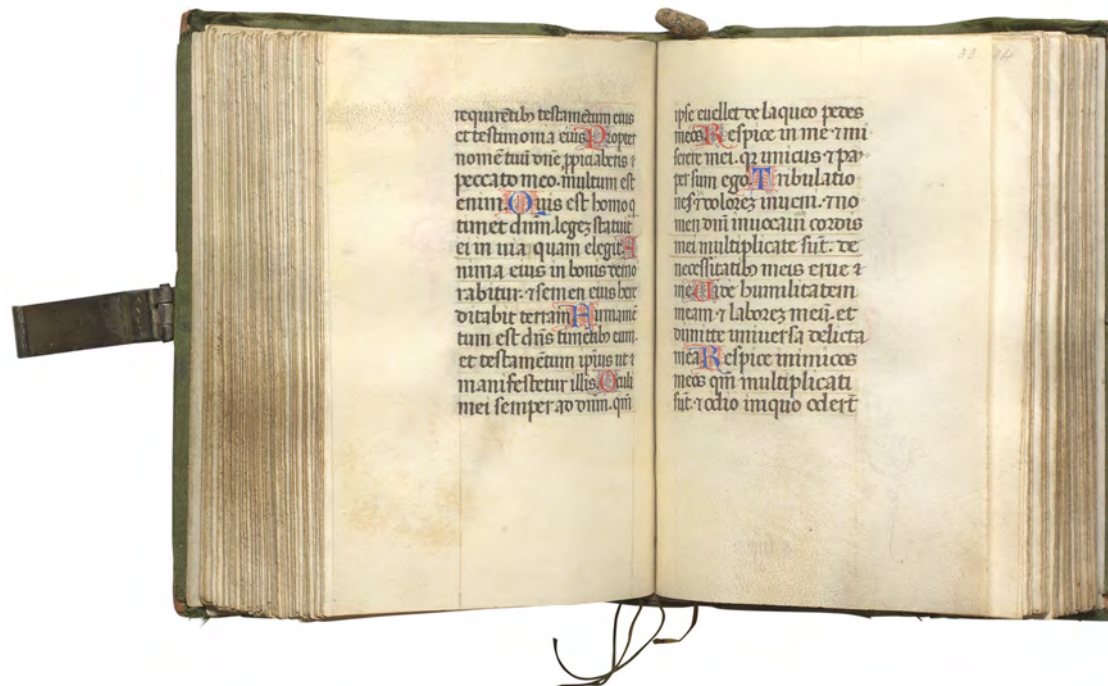 requirẽtibꝫ testamẽtum eius
et testimonia eius Propter
nomẽ tuũ dñe ꝓpiciaberis ⁊
peccato meo· multum est
enim Quis est homo q
timet dñm. legeʒ statuit
ei in uia quam elegit A
nima eius in bonis demo
rabitur· ⁊ semen eius here
ditabit terram Firmamẽ
tum est dñs timẽtibꝫ eum.
et testamẽtum ipĩus ut ⁊
manifestetur illis Oculi
mei semper ad dñm. qm̃
33 34
ipse euellet de laqueo pedes
meos Respice in me ⁊ mi
serere mei. qꝛ unicus ⁊ pau
per sum ego. Tribulatio
nes ⁊ doloreʒ inueni· ⁊ no
men dñi inuocaui cordis
mei multiplicate sũt. de
necessitatibꝫ meis erue ⁊
me Uide humilitatem
meam ⁊ laboreʒ meũ. et
dimitte uniuersa delicta
mea Respice inimicos
meos qm̃ multiplicati
sũt. ⁊ odio iniquo oderũt